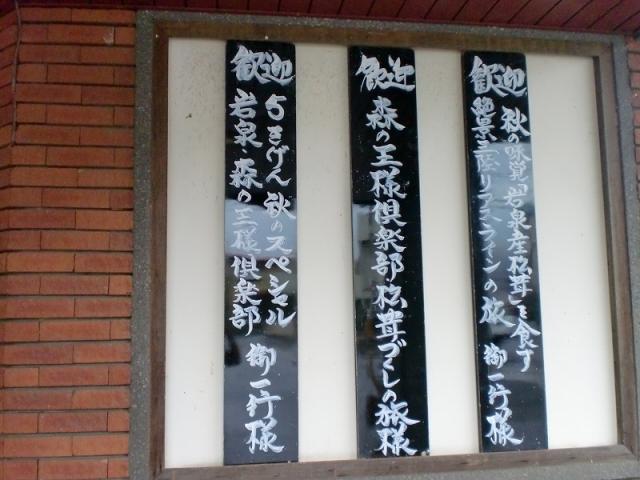 歓迎
秋の味覚「岩泉産松茸」を食す
絶景三陸リアスラインの旅
御一行様
歓迎
森の王様倶楽部・松茸づくしの旅様
歓迎
うきげん秋のスペシャル
岩泉・森の王様倶楽部
御一行様